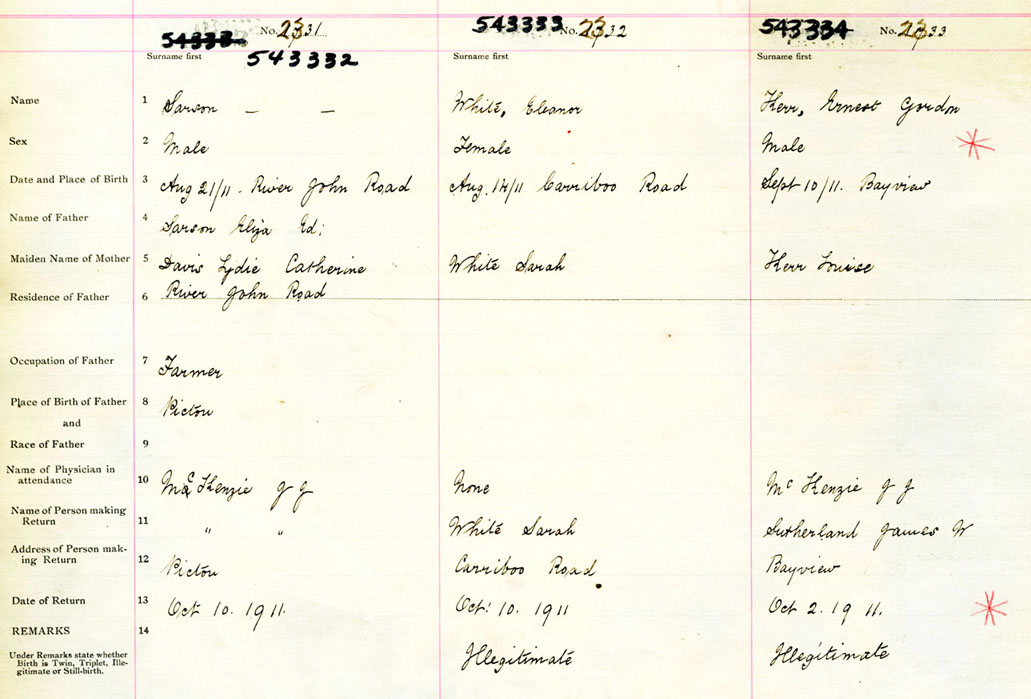 543333 No. 2331 543333 No. 2332 543334 No. 2333
Surname first 543332 Surname first Surname first
Name 1 Sarson — — White, Eleanor Kerr, Ernest Gordon
Sex 2 Male Female Male
Date and Place of Birth 3 Aug 21/11. River John Road Aug. 14/11 Carriboo Road Sept 10/11. Bayview
Name of Father 4 Sarson Elija Ed:
Maiden Name of Mother 5 Davis Lydie Catherine White Sarah Kerr Louise
Residence of Father 6 River John Road
Occupation of Father 7 Farmer
Place of Birth of Father 8 Pictou
and
Race of Father 9
Name of Physician in
attendance 10 McKenzie J J None McKenzie J J
Name of Person making
Return 11 " " White Sarah Sutherland James W
Address of Person mak-
ing Return 12 Pictou Carriboo Road Bayview
Date of Return 13 Oct 10. 1911. Oct. 10. 1911 Oct 2. 1911.
REMARKS 14
Under Remarks state whether
Birth is Twin, Triplet, Ille-
gitimate or Still-birth. Illegitimate Illegitimate